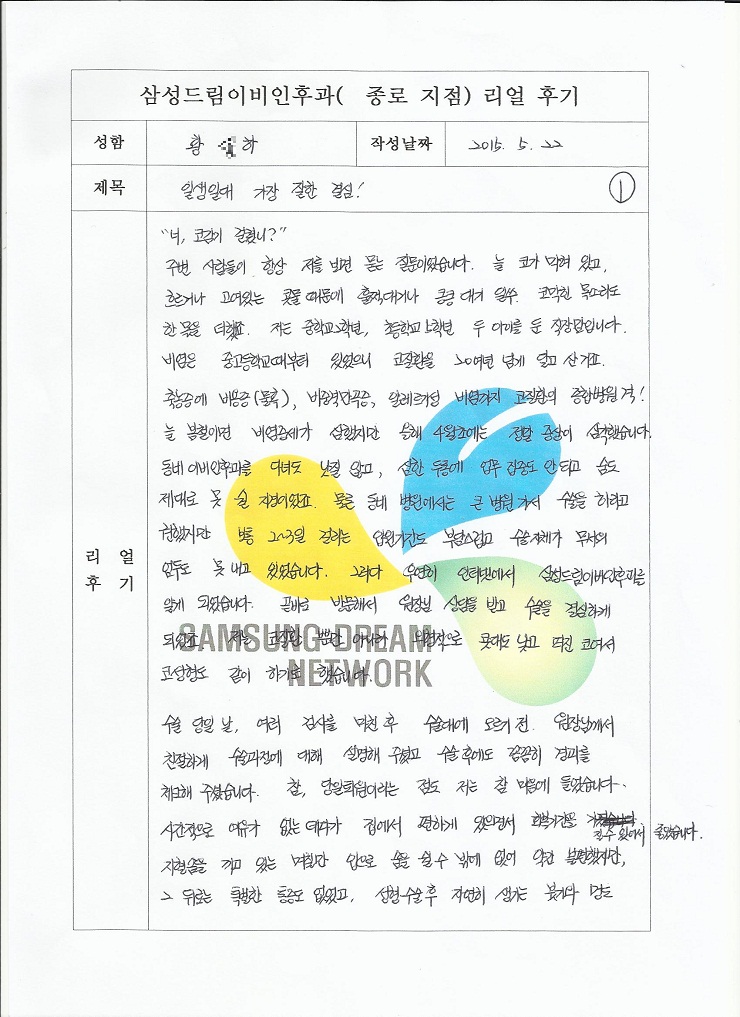 삼성드림이비인후과( 종로 지점) 리얼 후기
성함 황 하 작성날짜 2015. 5. 22
제목 일생일대 가장 잘한 결심! 1
리 얼
후 기
"너, 코감기 걸렸니?"
주변 사람들이 항상 저를 보면 묻는 질문이었습니다. 늘 코가 막혀 있고,
흐르거나 고여있는 콧물 때문에 훌쩍대거나 킁킁대기 일쑤. 코막힌 목소리도
한 몫을 더했죠. 저는 중학교2학년, 초등학교 학년 두 아이를 둔 직장맘입니다.
비염은 중고등학교때부터 있었으니 고질환을 20여년 넘게 달고 산거죠.
축농증에 비용증(물혹), 비중격만곡증, 알레르기성 비염까지 코질환의 종합병원 격!
늘 봄철이면 비염증세가 심했지만 올해 4월초에는 정말 증상이 심각했습니다.
동네 이비인후과를 다녀도 낫질 않고, 심한 두통에 업무 집중도 안되고 숨도
제대로 못 쉴 지경이었죠. 물론 동네 병원에서는 큰 병원 가서 수술을 하라고
권했지만 보통 2~3일 걸리는 입원기간도 부담스럽고 수술자체가 무서워
엄두도 못 내고 있었습니다. 그러다 우연히 인터넷에서 삼성드림이비인후과를
알게 되었습니다. 곧바로 방문해서 원장님 상담을 받고 수술을 결심하게
되었죠. 저는 코질환 뿐만 아니라 외형적으로 콧대도 낮고 퍼진 코여서
코성형도 같이 하기로 했습니다.
SAMSUNG DREAM
NETWORK
수술 당일 날, 여러 검사를 마친 후 수술대에 오르기 전. 원장님께서
친절하게 수술과정에 대해 설명해 주셨고 수술 후에도 꼼꼼히 경과를
체크해 주셨습니다. 참, 당일퇴원이라는 점도 저는 참 마음에 들었습니다.
시간적으로 여유가 없는 데다가 집에서 편하게 있으면서 회복기간을
가질 수 있어서 좋았습니다.
지혈솜을 끼고 있는 며칠만 입으로 숨을 쉴 수 밖에 없어 약간 불편했지만,
그 뒤로는 특별한 통증도 없었고, 성형수술 후 자연히 생기는 붓기와 멍도